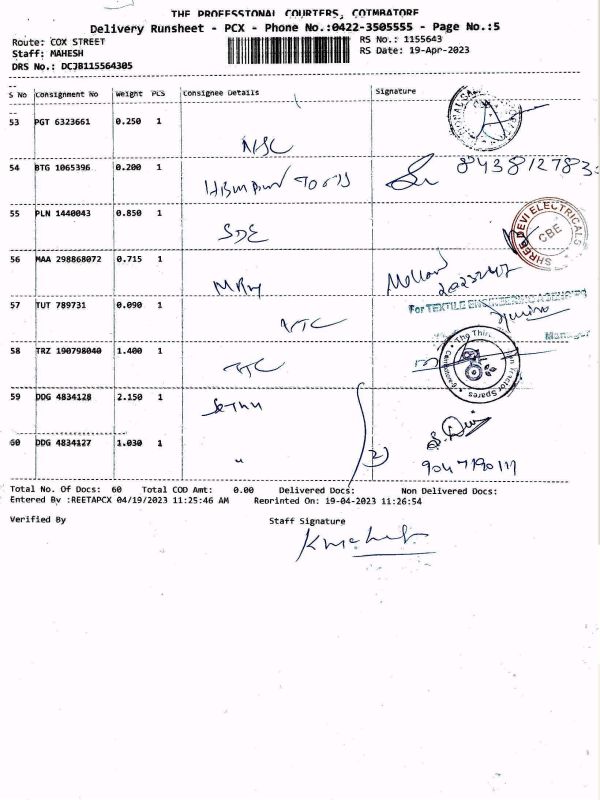 THE PROFESSIONAL COURIERS, COIMBATORE
Delivery Runsheet - PCX - Phone No.:0422-3505555 - Page No.:5
Route: COX STREET
RS No.: 1155643
Staff: MAHESH
RS Date: 19-Apr-2023
DRS No.: DCJB115564305
S No Consignment No Weight PCS Consignee Details Signature
53 PGT 6323661 0.250 1
54 BTG 1065396 0.200 1
8438127832
55 PLN 1440043 0.850 1 SDE
SHREE DEVI ELECTRICALS
CBE
56 MAA 298868072 0.715 1
57 TUT 789731 0.090 1 NTC
For TEXTILE ENGINEERING AGENCIES
Manager
58 TRZ 190798040 1.400 1
Tractor Spares
59 DDG 4834128 2.150 1 Sethu
60 DDG 4834127 1.030 1 "
2)
Total No. Of Docs: 60 Total COD Amt: 0.00 Delivered Docs: Non Delivered Docs:
Entered By :REETAPCX 04/19/2023 11:25:46 AM Reprinted On: 19-04-2023 11:26:54
Verified By Staff Signature